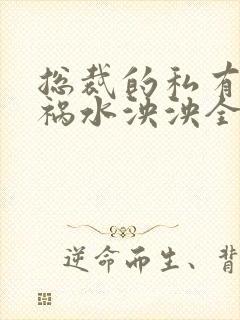 总裁的私有
祸水泱泱全
逆命而生、背